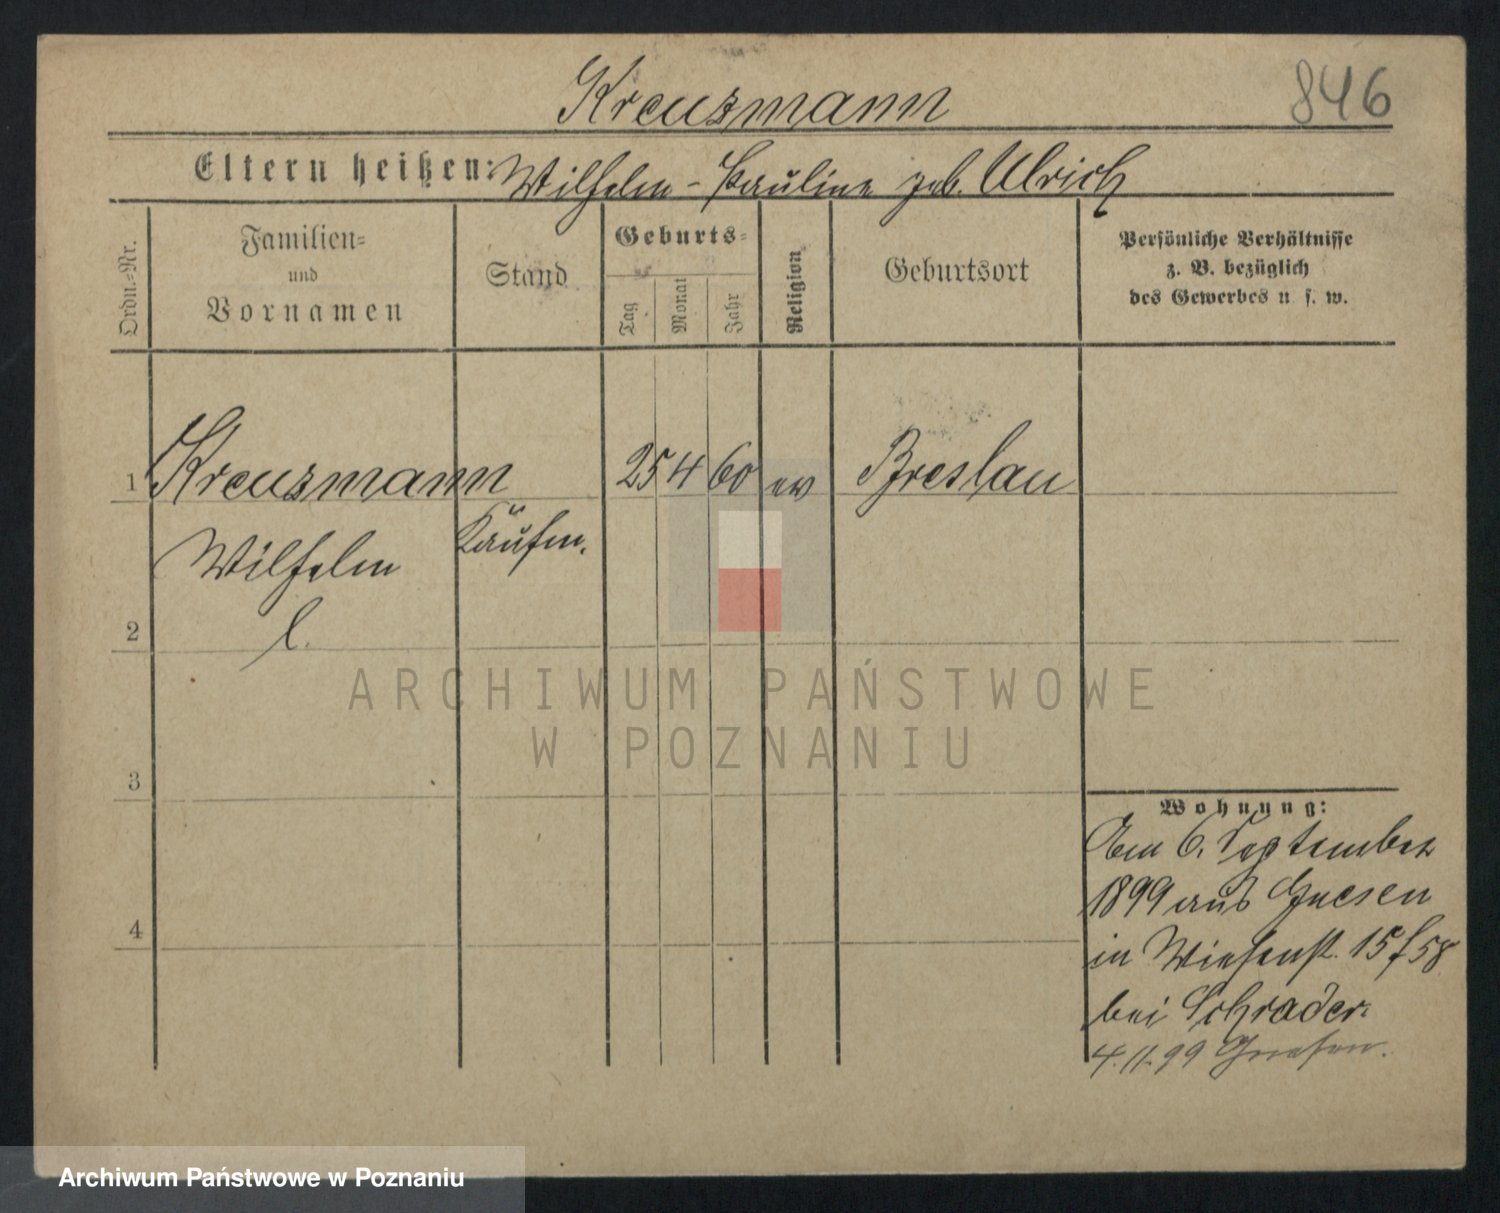 Kreuzmann
846
Eltern heißen: Wilhelm - Pauline geb. Ulrich
Ordn.-Nr.
Familien-
und
Vornamen
Stand
Geburts-
Tag
Monat
Jahr
Religion
Geburtsort
Persönliche Verhältnisse
z. B. bezüglich
des Gewerbes u. s. w.
1 Kreuzmann 25 4 60 ev Breslau
Wilhelm Kaufm.
l.
2
3
4
Wohnung:
Am 6. September
1899 aus Gnesen
in Wiesenst. 15 f 58
bei Schrader.
4.11.99 Gnesen.
ARCHIWUM PAŃSTWOWE
W POZNANIU
Archiwum Państwowe w Poznaniu